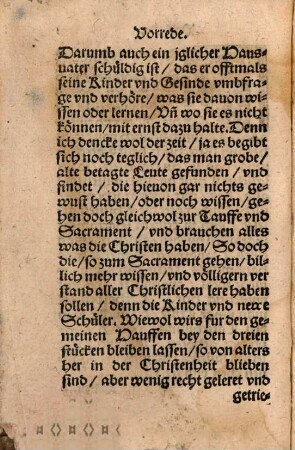 Vorrede.
Darumb auch ein jglicher Haus⸗
uater schüldig ist / das er offtmals
seine Kinder vnd Gesinde vmbfra⸗
ge vnd verhöre / was sie dauon wi⸗
ssen oder lernen / Vn̄ wo sie es nicht
können / mit ernst dazu halte. Denn
ich dencke wol der zeit / ja es begibt
sich noch teglich / das man grobe /
alte betagte Leute gefunden / vnd
findet / die hieuon gar nichts ge⸗
wust haben / oder noch wissen / ge⸗
hen doch gleichwol zur Tauffe vnd
Sacrament / vnd brauchen alles
was die Christen haben / So doch
die / so zum Sacrament gehen / bil⸗
lich mehr wissen / vnd völligern ver
stand aller Christlichen lere haben
sollen / denn die Kinder vnd newe
Schüler. Wiewol wirs für den ge⸗
meinen Hauffen bey den dreien
stücken bleiben lassen / so von alters
her in der Christenheit blieben
sind / aber wenig recht geleret vnd
getrie⸗